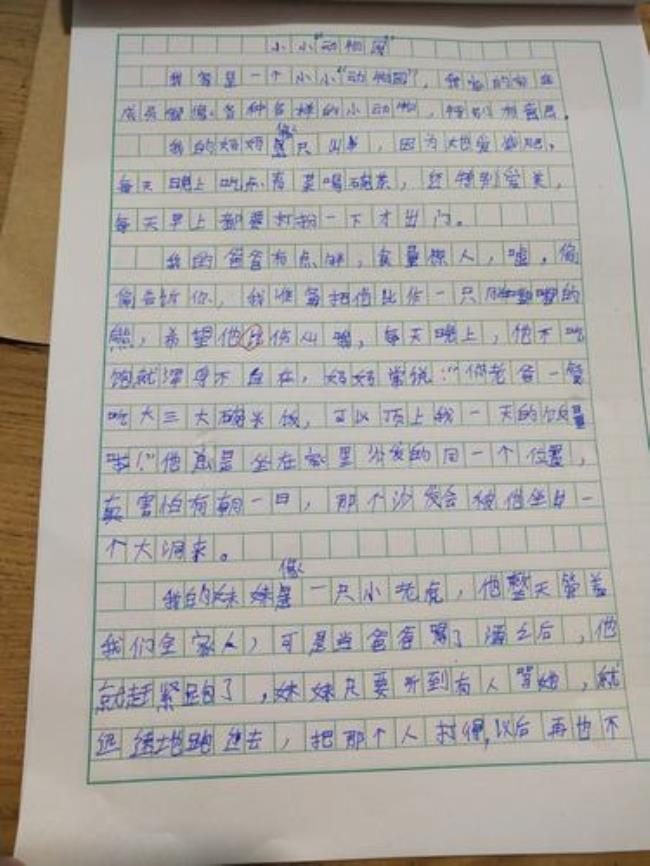 小小"动物园"
我家是一个小小"动物园",我家的家庭
成员都像各种各样的小动物,特别有意思。
我的妈妈像只山羊,因为她爱
每天晚上吃点青菜喝碗茶,还特别爱美,
每天早上都要打扮一下才出门。
我的爸爸有点胖,食量惊人,嘘,偷
偷告诉你,我准备把他比作一只胖嘟嘟的
熊,希望他 每天晚上,他不吃
饱就浑身不自在,妈妈常说:"你老爸一餐
吃大三大碗米饭,可以顶上我一天的饭量
啦!"他总是坐在家里沙发的同一个位置,
真害怕有朝一日,那个沙发会被他坐出一
个大洞来。
我的妹妹像一只小老虎,他整天管着
我们全家人,可是当爸爸骂了 之后,他
就赶紧跑了,妹妹只要听到有人骂她,就
迅速地跑过去,把那个人打得,以后再也不